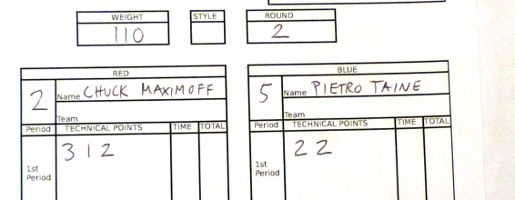 WEIGHT STYLE ROUND
110 2
RED
2 Name CHUCK MAXIMOFF
Team
Period TECHNICAL POINTS TIME TOTAL
1st Period 3 1 2
BLUE
5 Name PIETRO TAINE
Team
Period TECHNICAL POINTS TIME TOTAL
1st Period 2 2